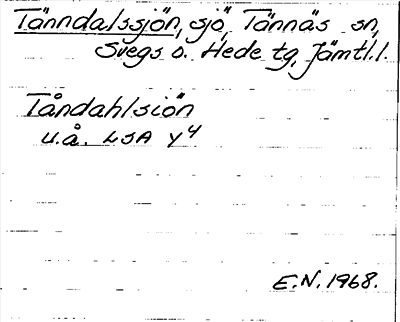 Tänndalssjön, sjö, Tännäs sn,
Svegs o. Hede tg, Jämtl.l.
Tåndahlsiön
u.å. LSA Y4
E.N. 1968.